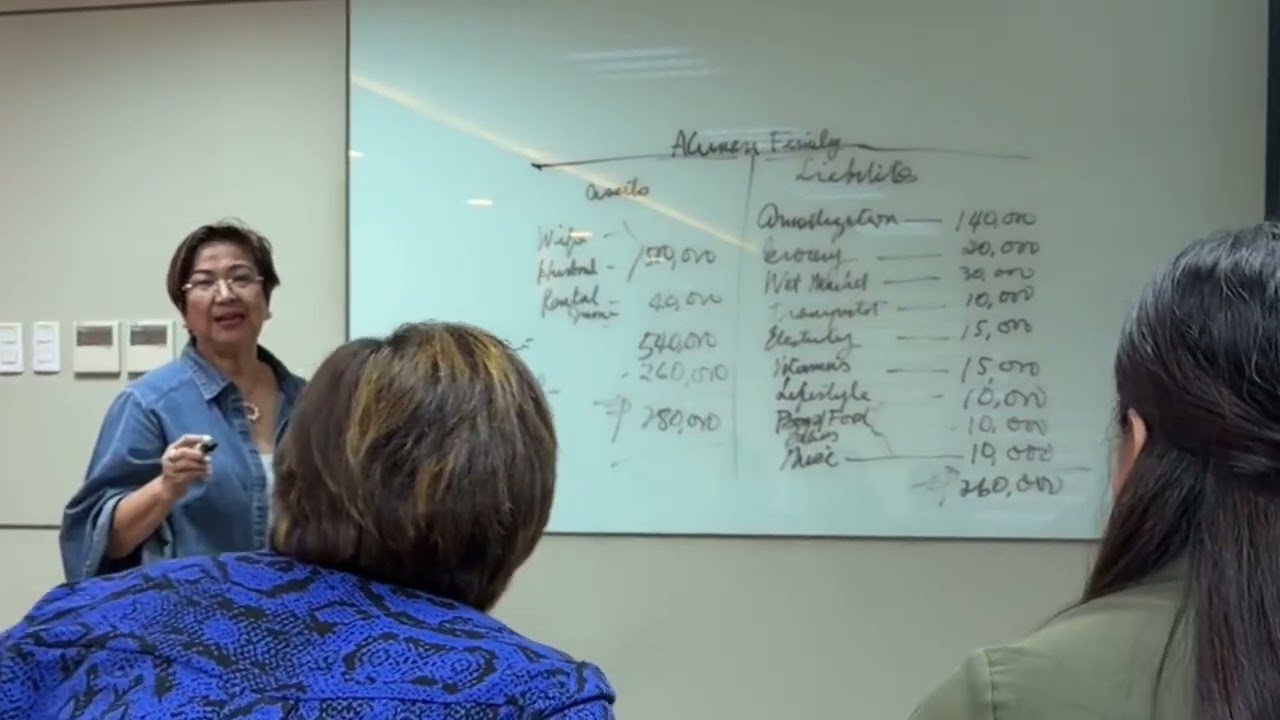 Family
Assets
Wife -
Husband - 500,000
Rental - 40,000
540,000
- 260,000
⇒ 280,000
Liabilities
Amortization — 140,000
Grocery — 20,000
Wet Market — 30,000
— 10,000
Electricity — 15,000
Vitamins — 15,000
Lifestyle — 10,000
Food 10,000
Music — 10,000
260,000